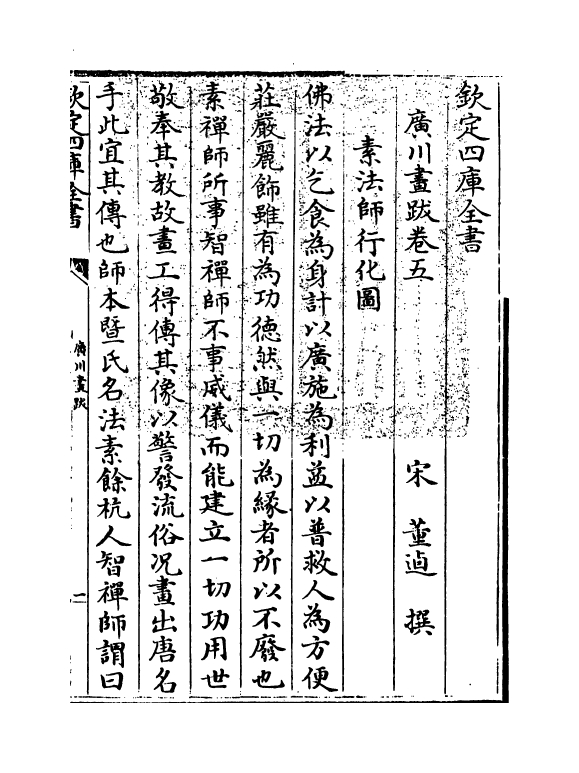 欽定四庫全書
廣川畫跋卷五
宋 董逌 撰
素法師行化圖
佛法以乞食為身計以廣施為利益以普救人為方便
莊嚴麗飾雖有為功德然與一切為緣者所以不廢也
素禪師所事智禪師不事威儀而能建立一切功用世
敬奉其教故畫工得傳其像以警發流俗况畫出唐名
手此宜其傳也師本暨氏名法素餘杭人智禪師謂曰
欽定四庫全書
廣川畫跋